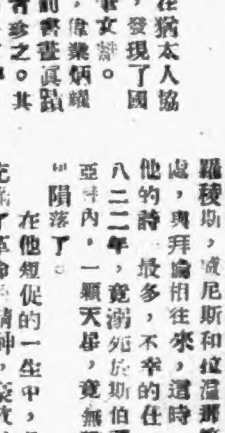 在猶太人協
，發現了國
文
，偉業炳耀
書畫眞蹟
珍之。其
羅稜斯，威尼斯和拉溫那
處，與拜倫相往來，這時
他的詩 最多，不幸的
八二二年，竟溺死於斯伯
亞 內，一顆天星，竟無
隕落了。
在他短促的一生中，
了革命 精神，豪放